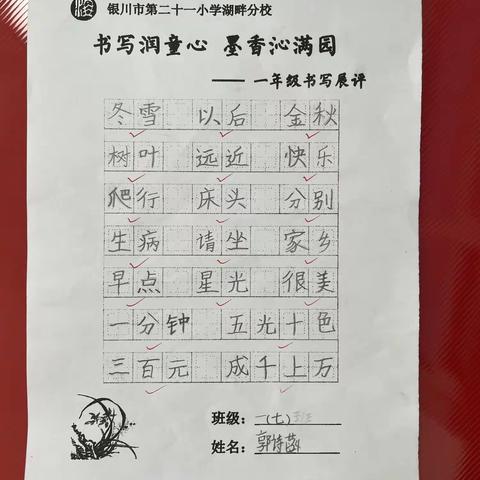 银川市第二十一小学湖畔分校
书写润童心 墨香沁满园
—— 一年级书写展评
冬雪 以后 金秋
树叶 远近 快乐
爬行 床头 分别
生病 请坐 家乡
早点 星光 很美
一分钟 五光十色
三百元 成千上万
班级：一(七)班
姓名：郭诗菡